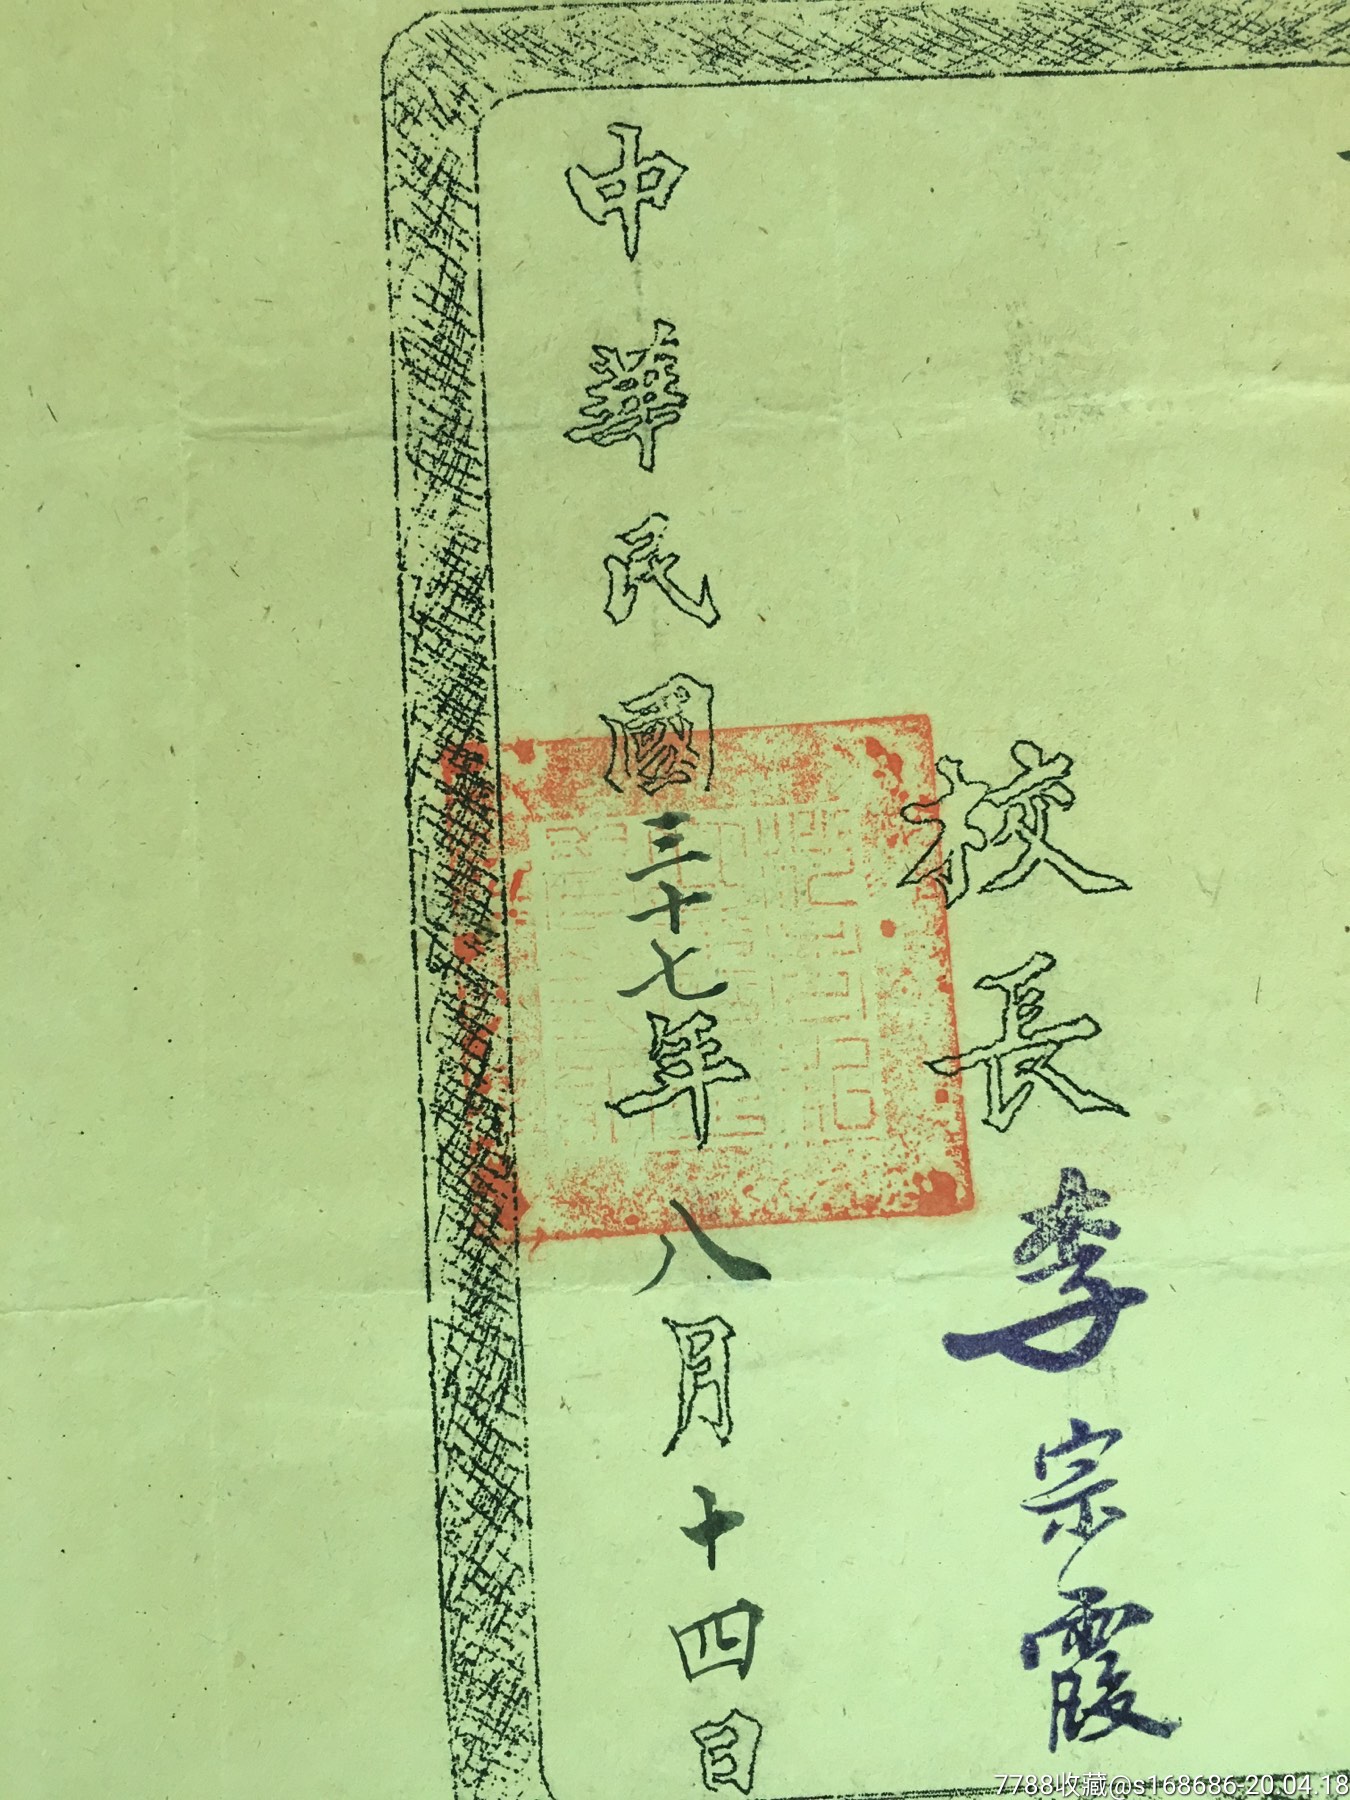 校長李宗霞
中華民國三十七年八月十四日
7788收藏@s168686-20.04.18